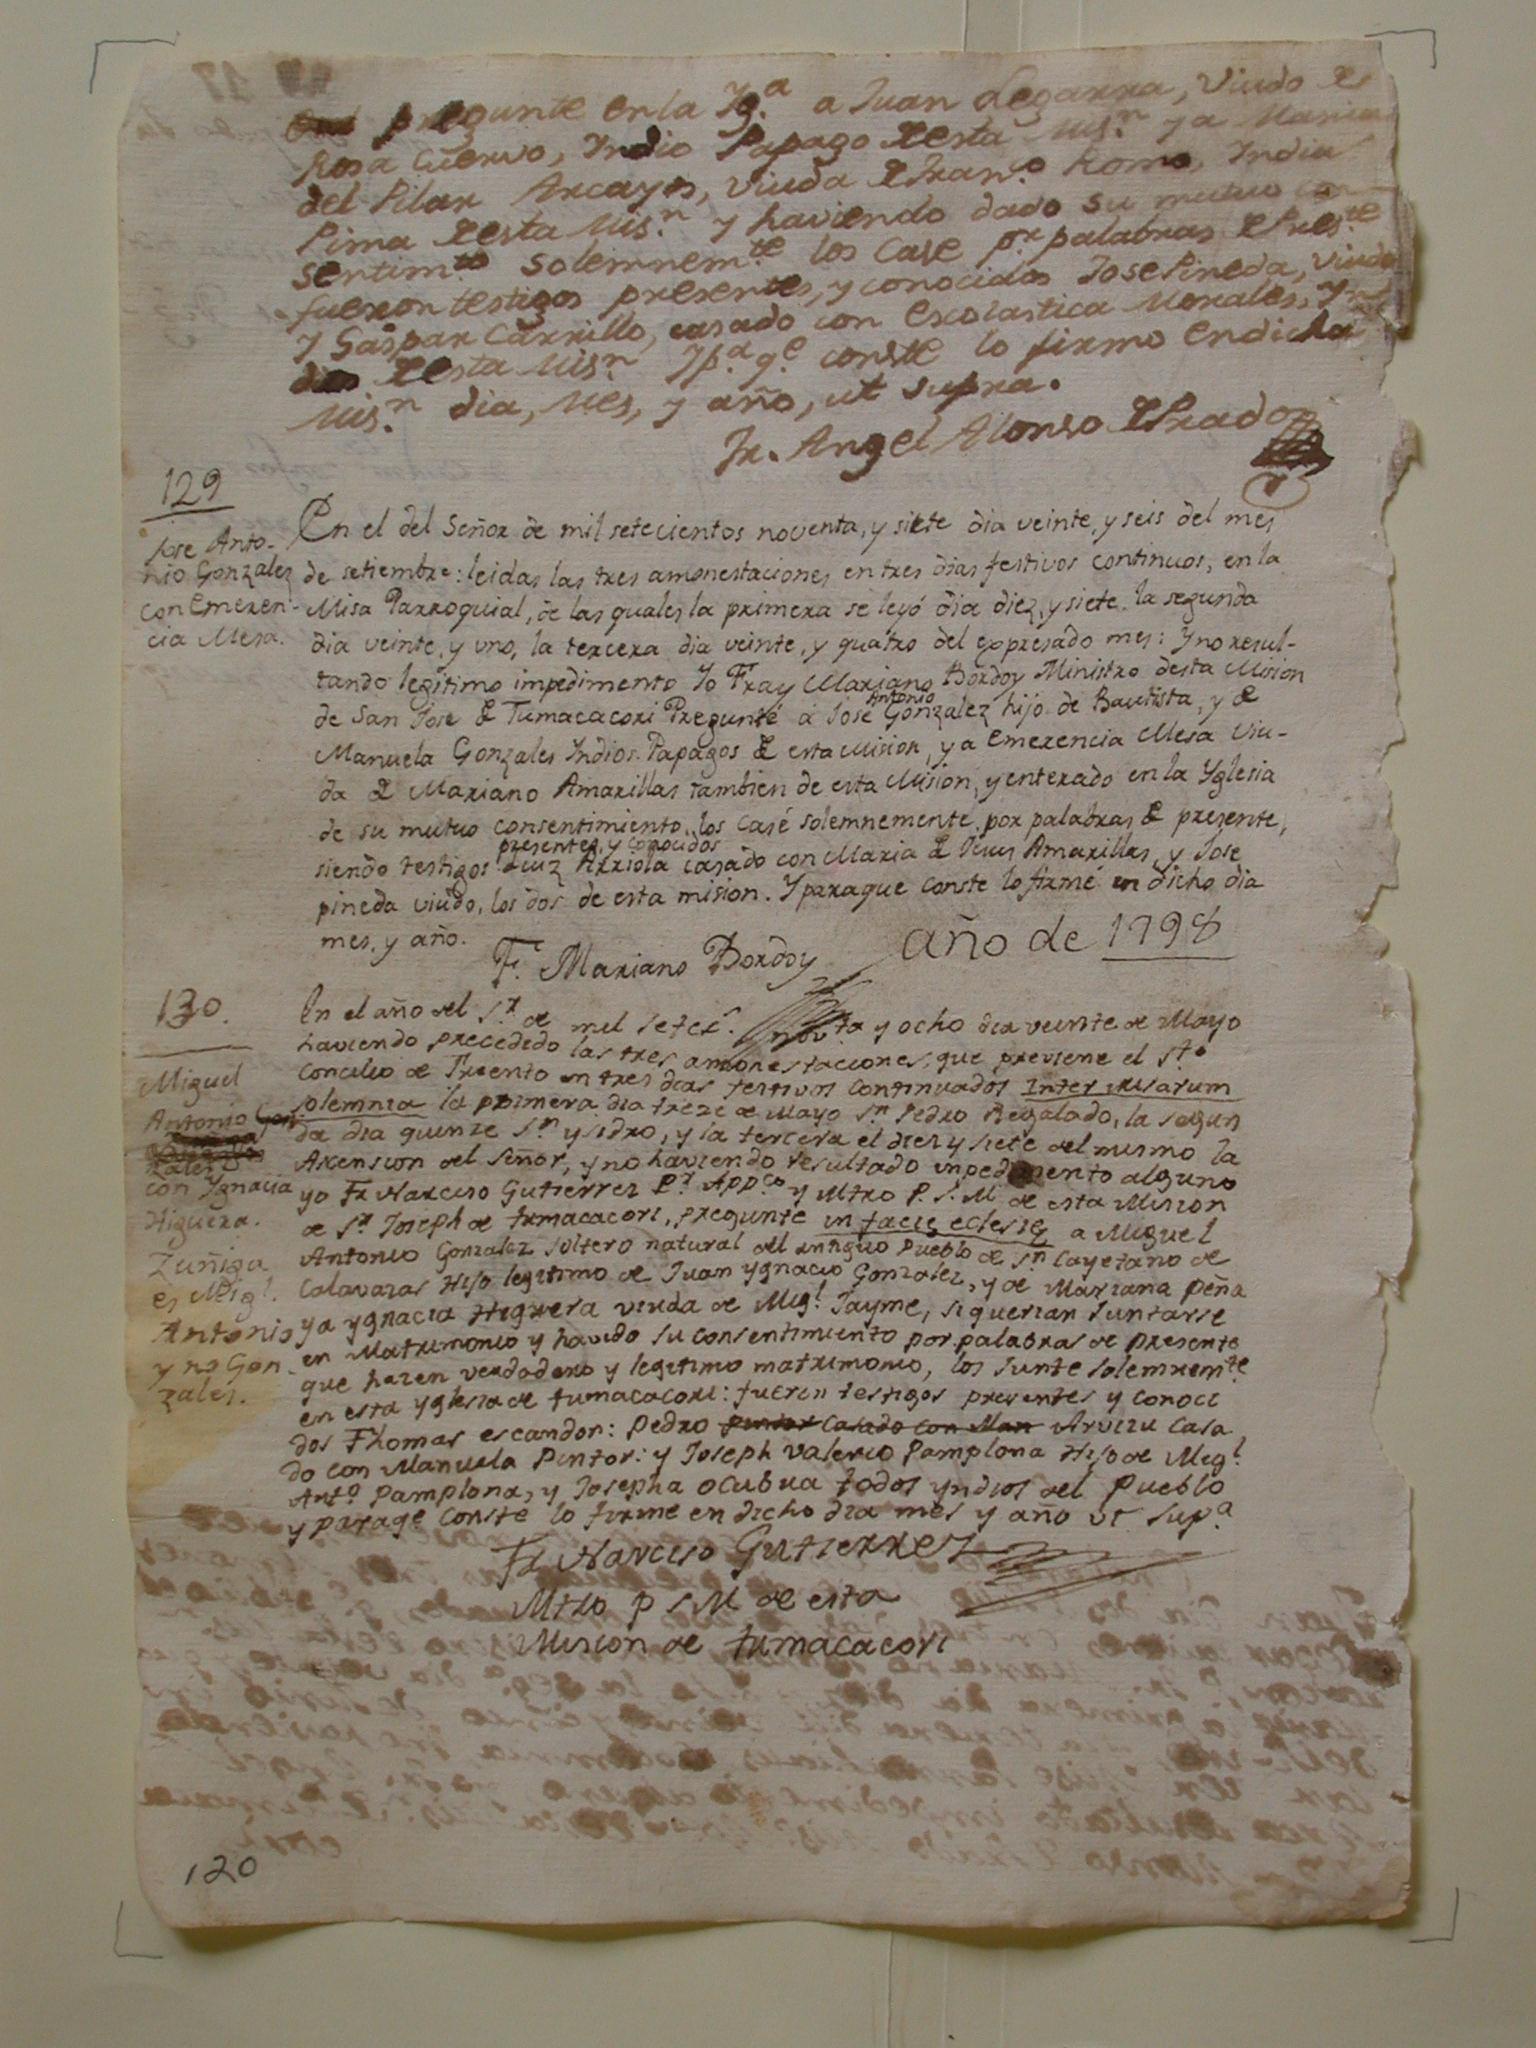 pregunte en la Yg.a a Juan Legarra, Viudo de
Rosa Cuervo, Yndio Papago desta Mis.n y a Maria
del Pilar Arcayos, viuda de Fran.co Romo, India
Pima desta Mis.n y haviendo dado su mutuo con
sentim.to solemnem.te los Case p.r palabras de Pres.te
fueron testigos presentes, y conocidos Jose Pineda, viudo
y Gaspar Carrillo, casado con Escolastica Morales, Yn
dios desta Mis.n Y p.a q.e conste lo firmo en dicha
Mis.n dia, Mes, y año, ut supra.
Fr. Angel Alonso de Prado
129
Jose Anto-
nio Gonzalez
con Emeren-
cia Mesa.
En el del Señor de mil setecientos noventa, y siete dia veinte, y seis del mes
de setiembre: leidas las tres amonestaciones en tres dias festivos continuos, en la
Misa Parroquial, de las quales la primera se leyó dia diez, y siete. la segunda
dia veinte, y uno, la tercera dia veinte, y quatro del expresado mes: Y no resul-
tando legitimo impedimento Yo Fray Mariano Bordoy Ministro desta Mision
de San Jose de Tumacacori Pregunté á Jose Antonio Gonzalez hijo de Bautista, y de
Manuela Gonzales Yndios Papagos de esta Mision, y a Emerencia Mesa Viu-
da de Mariano Amarillas tambien de esta Mision, y enterado en la Yglesia
de su mutuo consentimiento, los Casé solemnemente por palabras de presente,
siendo testigos presentes, y conocidos Luiz Arriola casado con Maria de Jesus Amarillas, y Jose
pineda viudo, los dos de esta mision. Y paraque conste lo firmé en dicho dia
mes, y año.
Fr. Mariano Bordoy
año de 1798
130.
Miguel
Antonio Gon
zalez
con Ygnacia
Higuera.
Zuñiga
es Mig.l
Antonio
y no Gon-
zales.
En el año del S.r de mil setec.s nov.ta y ocho dia veinte de Mayo
haviendo precedido las tres amonestaciones, que previene el S.to
Concilio de Trento en tres dias festivos continuados Inter misarum
solemnia la primera dia treze de Mayo S.n Pedro Regalado, la segun
da dia quinze S.n Ysidro, y la tercera el diez y siete del mismo la
Axension del Señor, y no haviendo resultado impedimento alguno
yo Fr Narciso Gutierrez P.r App.co y Mtro P. S. M. de esta Mision
de S.n Joseph de tumacacori, pregunte in facie eclesie a Miguel
Antonio Gonzalez soltero natural del antiguo Pueblo de S.n Cayetano de
Calavazas Hijo legitimo de Juan Ygnacio Gonzalez, y de Mariana Peña
y a ygnacia Higuera viuda de Mig.l Jayme, si querian Juntarse
en Matrimonio y havido su consentimiento por palabras de presente
que hazen verdadero y legitimo matrimonio, los Junte solemnem.te
en esta yglesia de tumacacori: fueron testigos presentes y conoci
dos Fhomas escandon: Pedro pintor Casado con Man Arvizu Casa
do con Manuela Pintor: y Joseph Valerio Pamplona Hijo de Mig.l
Ant.o Pamplona, y Josepha Ocubua todos yndios del Pueblo
y paraq.e conste lo firme en dicho dia mes y año ut sup.a
Fr Narciso Gutierrez
Mtro p S M de esta
Mision de tumacacori
120